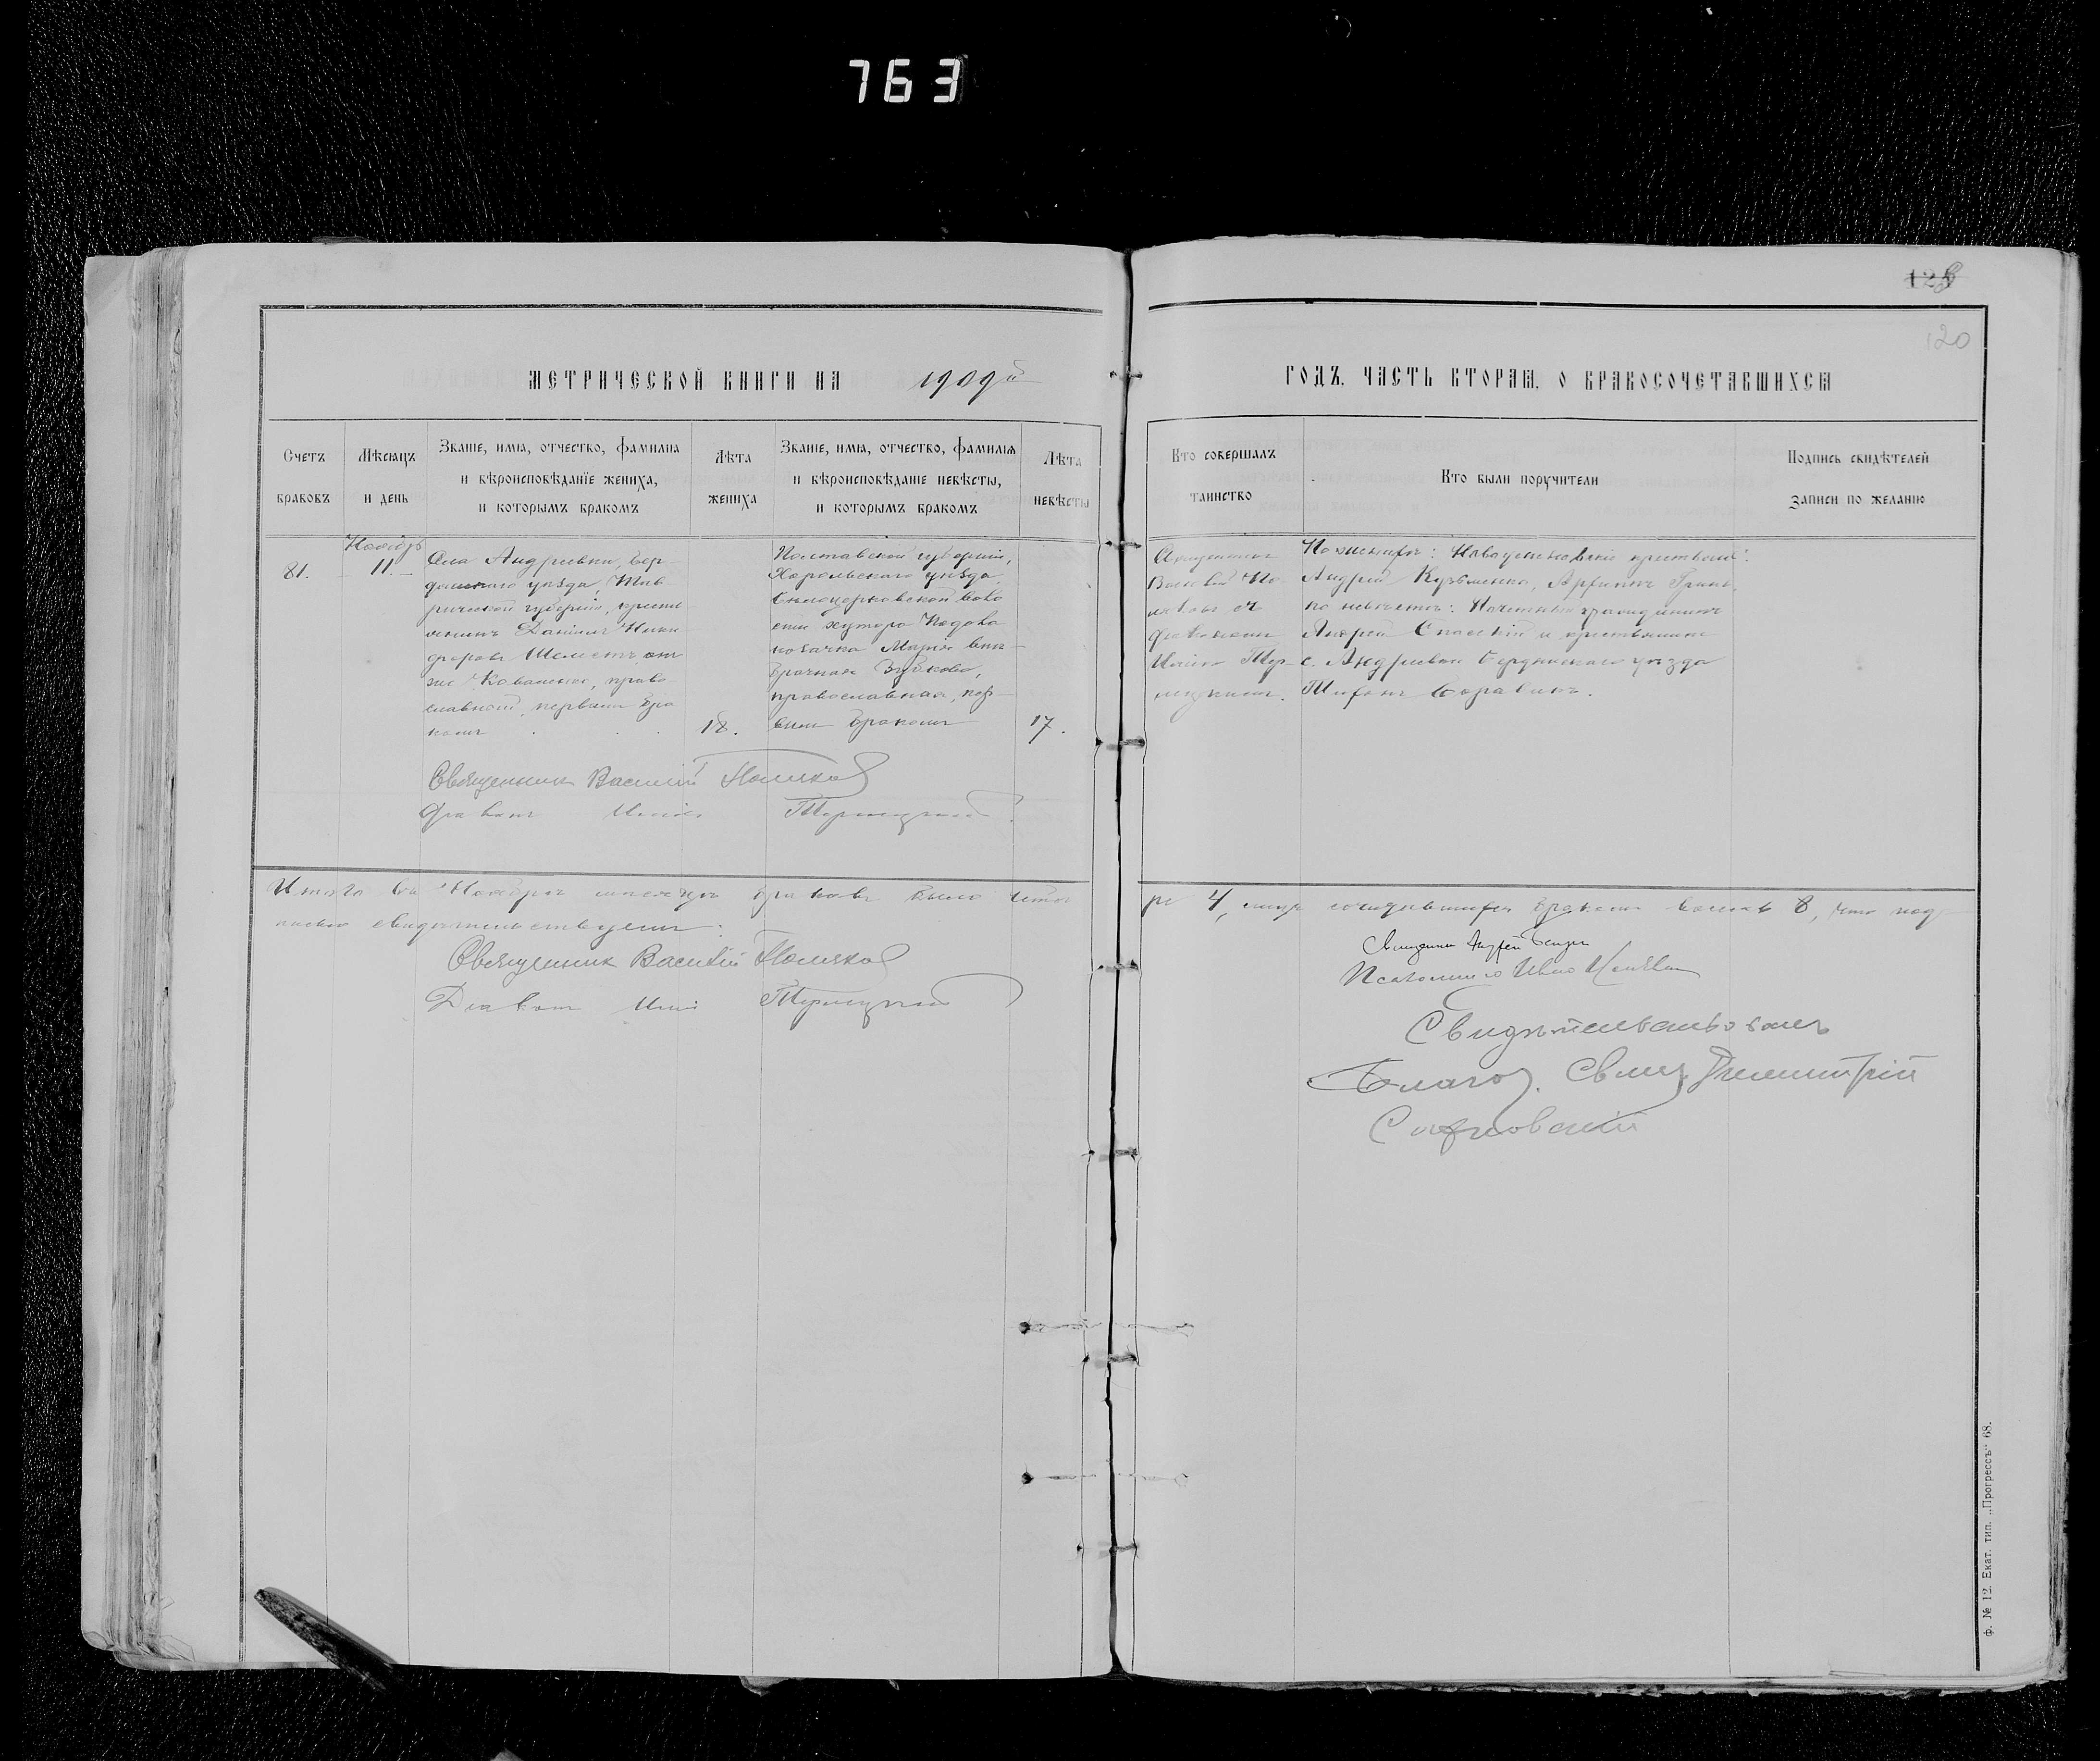 763
128
120
МЕТРИЧЕСКОЙ КНИГИ НА 1909й
ГОДЪ, ЧАСТЬ ВТОРАЯ, О БРАКОСОЧЕТАВШИХСЯ
Счетъ
браковъ
Мѣсяцъ
и день
Званіе, имя, отчество, фамилія
и вѣроисповѣданіе жениха,
и которымъ бракомъ
Лѣта
жениха
Званіе, имя, отчество, фамилія
и вѣроисповѣданіе невѣсты,
и которымъ бракомъ
Лѣта
невѣсты
Кто совершалъ
таинство
Кто были поручители
Подпись свидѣтелей
записи по желанію
81.
Ноябрь
11.
Села Андреевки, Бер-
дянскаго уѣзда, Тав-
рической губерніи, крестья
нинъ Даніилъ Ники
форовъ Шеметъ онъ
же Коваленко, право-
славный, первымъ бра
комъ
18.
Полтавской губерніи,
Хорольскаго уѣзда,
Бѣлоцерковской воло
сти хутора
козачка Марія внѣ-
брачная Зубкова,
православная, пер-
вымъ бракомъ
17.
Священникъ
Василій По-
ляковъ съ
діакономъ
По женихѣ: крестьяне:
Андрей Кузьменко,
по невѣстѣ: Почетный гражданинъ
Андрей Спасскій и крестьянинъ
с. Андреевки Бердянскаго уѣзда
Священникъ Василій Поляковъ
Діаконъ
Итого въ Ноябрѣ мѣсяцѣ браковъ было четы
ре 4, лицъ сочетавшихся бракомъ восемь 8, что под-
писью свидѣтельствуемъ:
Священникъ Василій Поляковъ
Діаконъ
Священникъ Андрей
Псаломщикъ
Свидѣтельствовалъ
Благоч. Свящ. Димитрій
ф. № 12. Екат. тип. „Прогрессъ" 68.